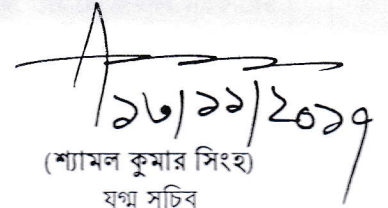 ১৩/১১/২০১৭
(শ্যামল কুমার সিংহ)
যুগ্ম সচিব